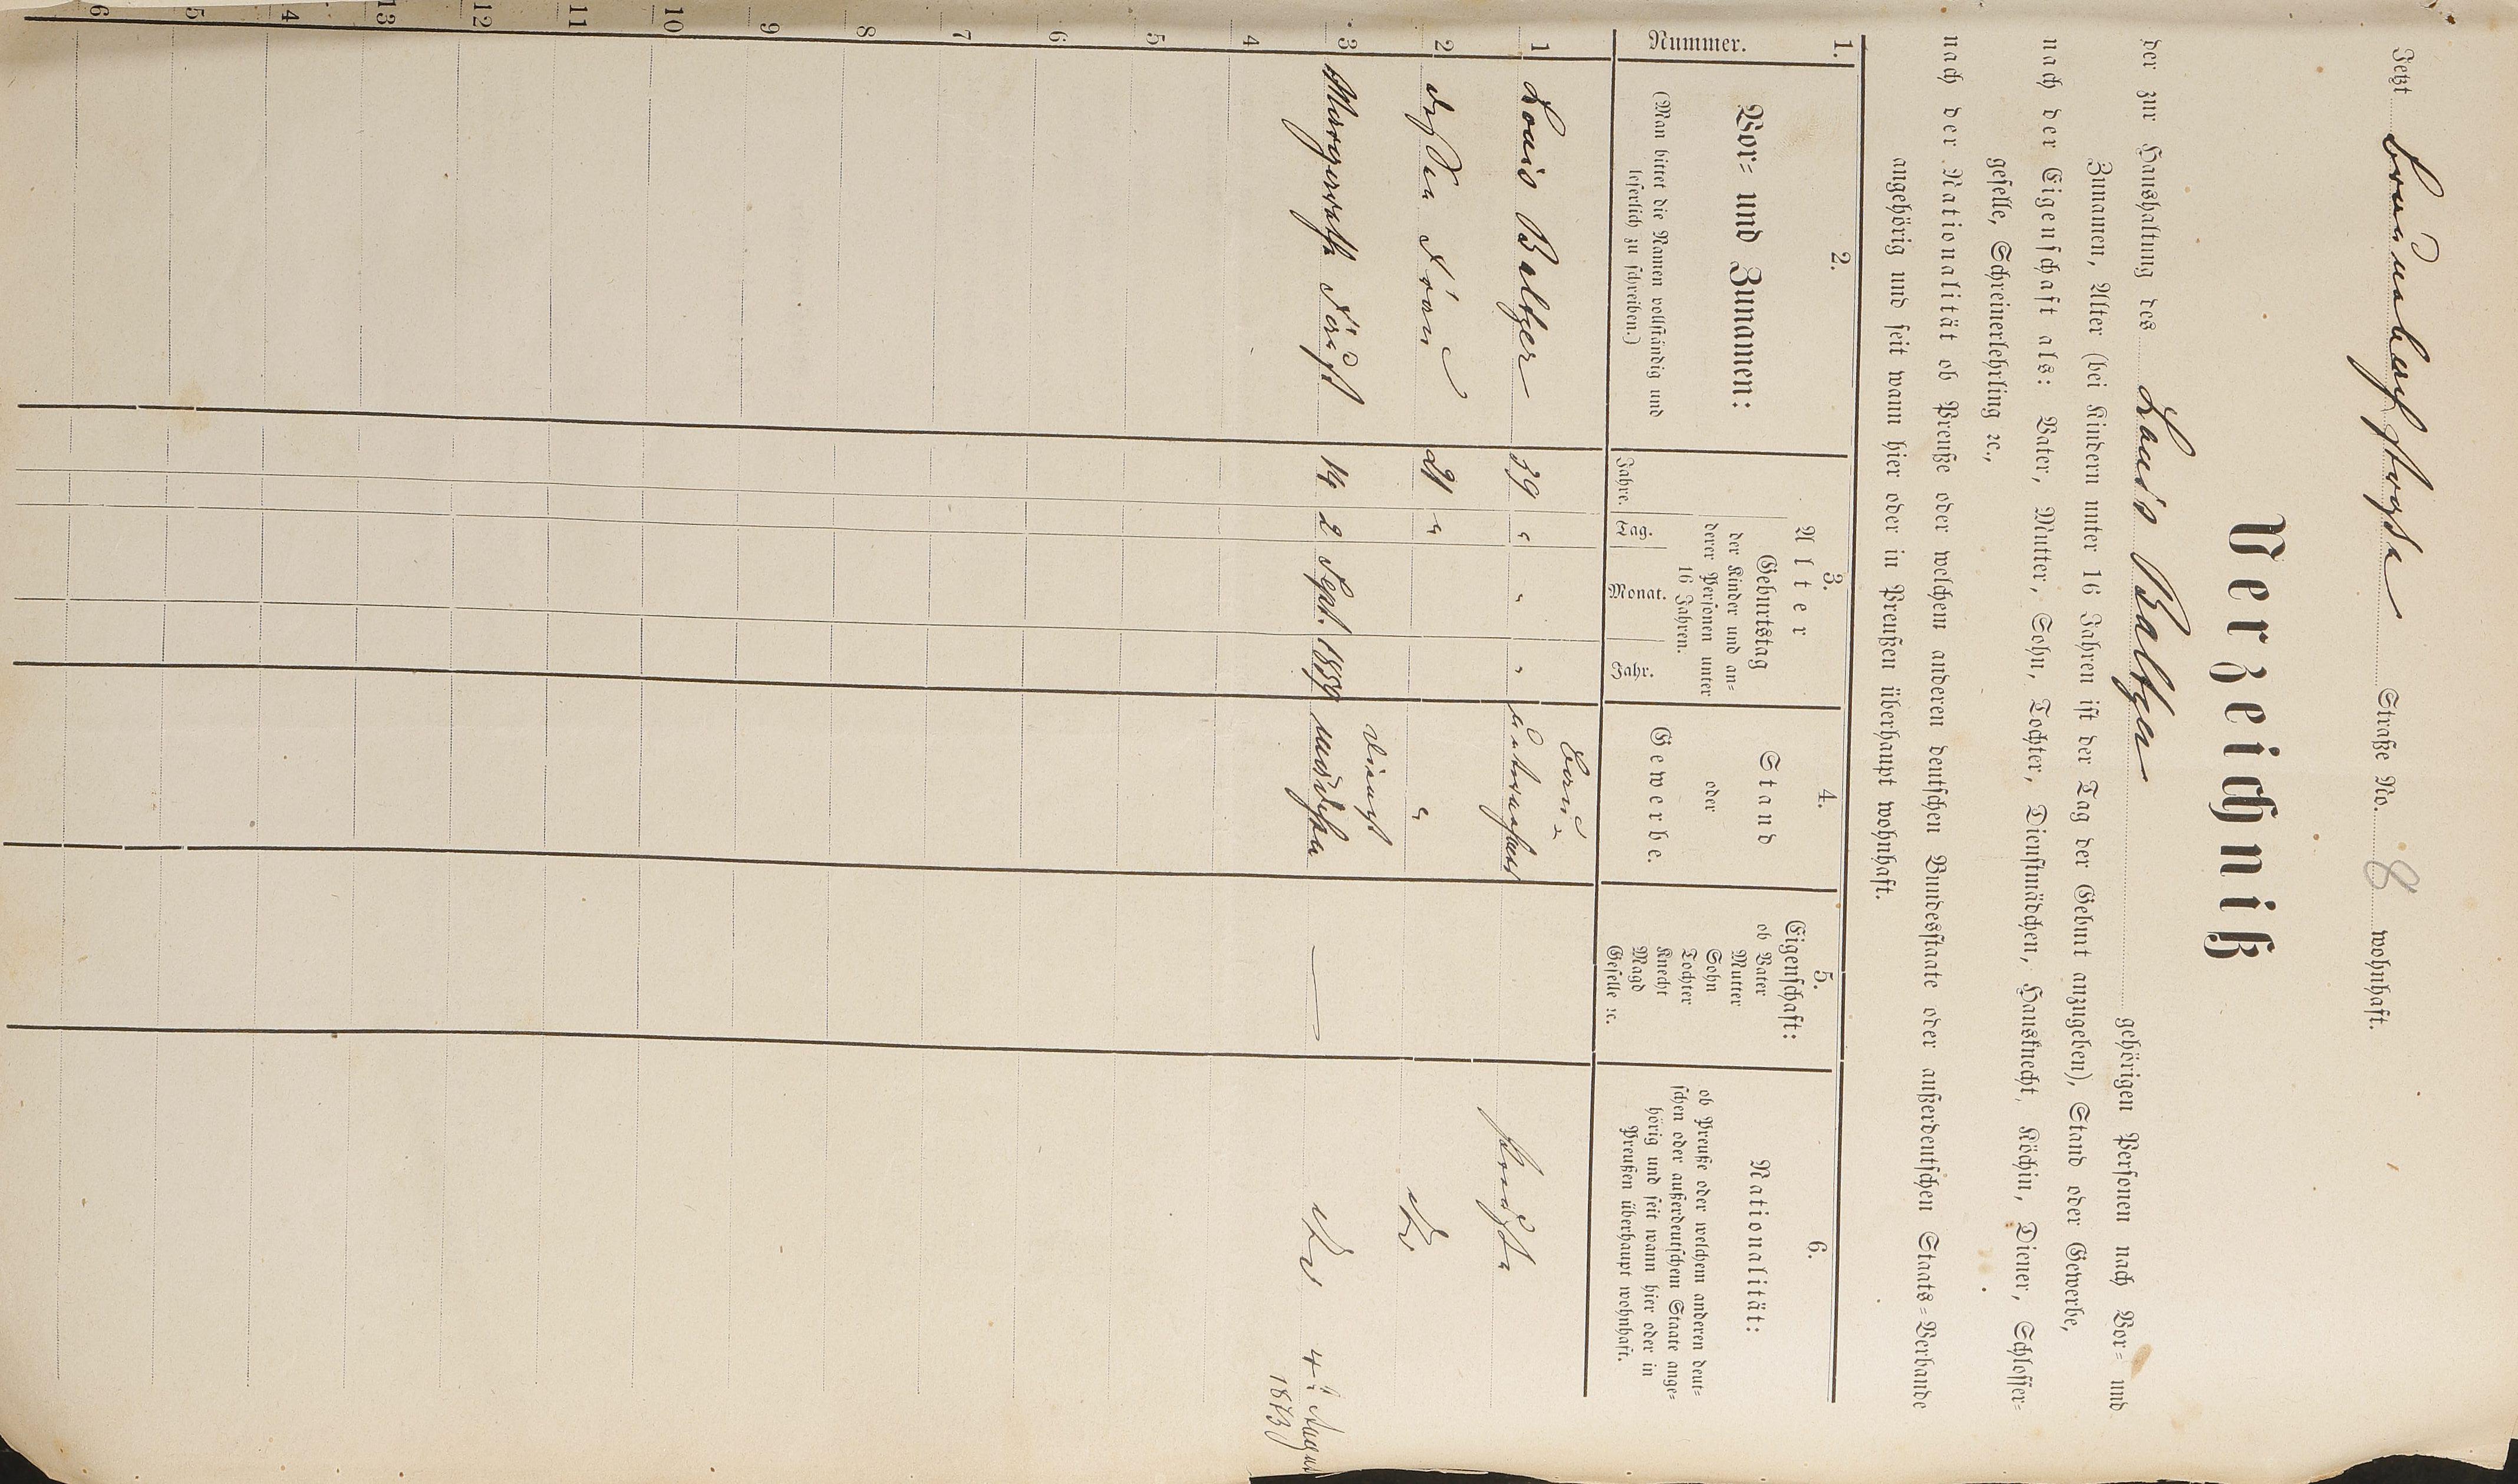 Jetzt Braunbachstraße Straße No. 8 wohnhaft.
Verzeichniß
der zur Haushaltung des Louis Baltzer gehörigen Personen nach Vor= und
Zunamen, Alter (bei Kindern unter 16 Jahren ist der Tag der Geburt anzugeben), Stand oder Gewerbe,
nach der Eigenschaft als: Vater, Mutter, Sohn, Tochter, Dienstmädchen, Hausknecht, Köchin, Diener, Schlosser=
geselle, Schreinerlehrling ꝛc.,
nach der Nationalität ob Preuße oder welchem anderen deutschen Bundesstaate oder außerdeutschen Staats=Verbande
angehörig und seit wann hier oder in Preußen überhaupt wohnhaft.
1. 2. 3. 4. 5. 6.
Nummer.
Vor= und Zunamen:
(Man bittet die Namen vollständig und
leserlich zu schreiben.)
Alter
Geburtstag
der Kinder und an=
derer Personen unter
16 Jahren.
Jahre. Tag. Monat. Jahr.
Stand
oder
Gewerbe.
Eigenschaft:
ob Vater
Mutter
Sohn
Tochter
Knecht
Magd
Geselle ꝛc.
Nationalität:
ob Preuße oder welchem anderen deut=
schen oder außerdeutschem Staate ange=
hörig und seit wann hier oder in
Preußen überhaupt wohnhaft.
1 Louis Baltzer 39 " " " Bau=
unternehmer Preuße
2 dessen Frau 21 " "
3 Margaretha Faust 14 2 Sept. 1859 Dienst
mädchen — 4. August
1873
4
5
6
7
8
9
10
11
12
13
4
5
6